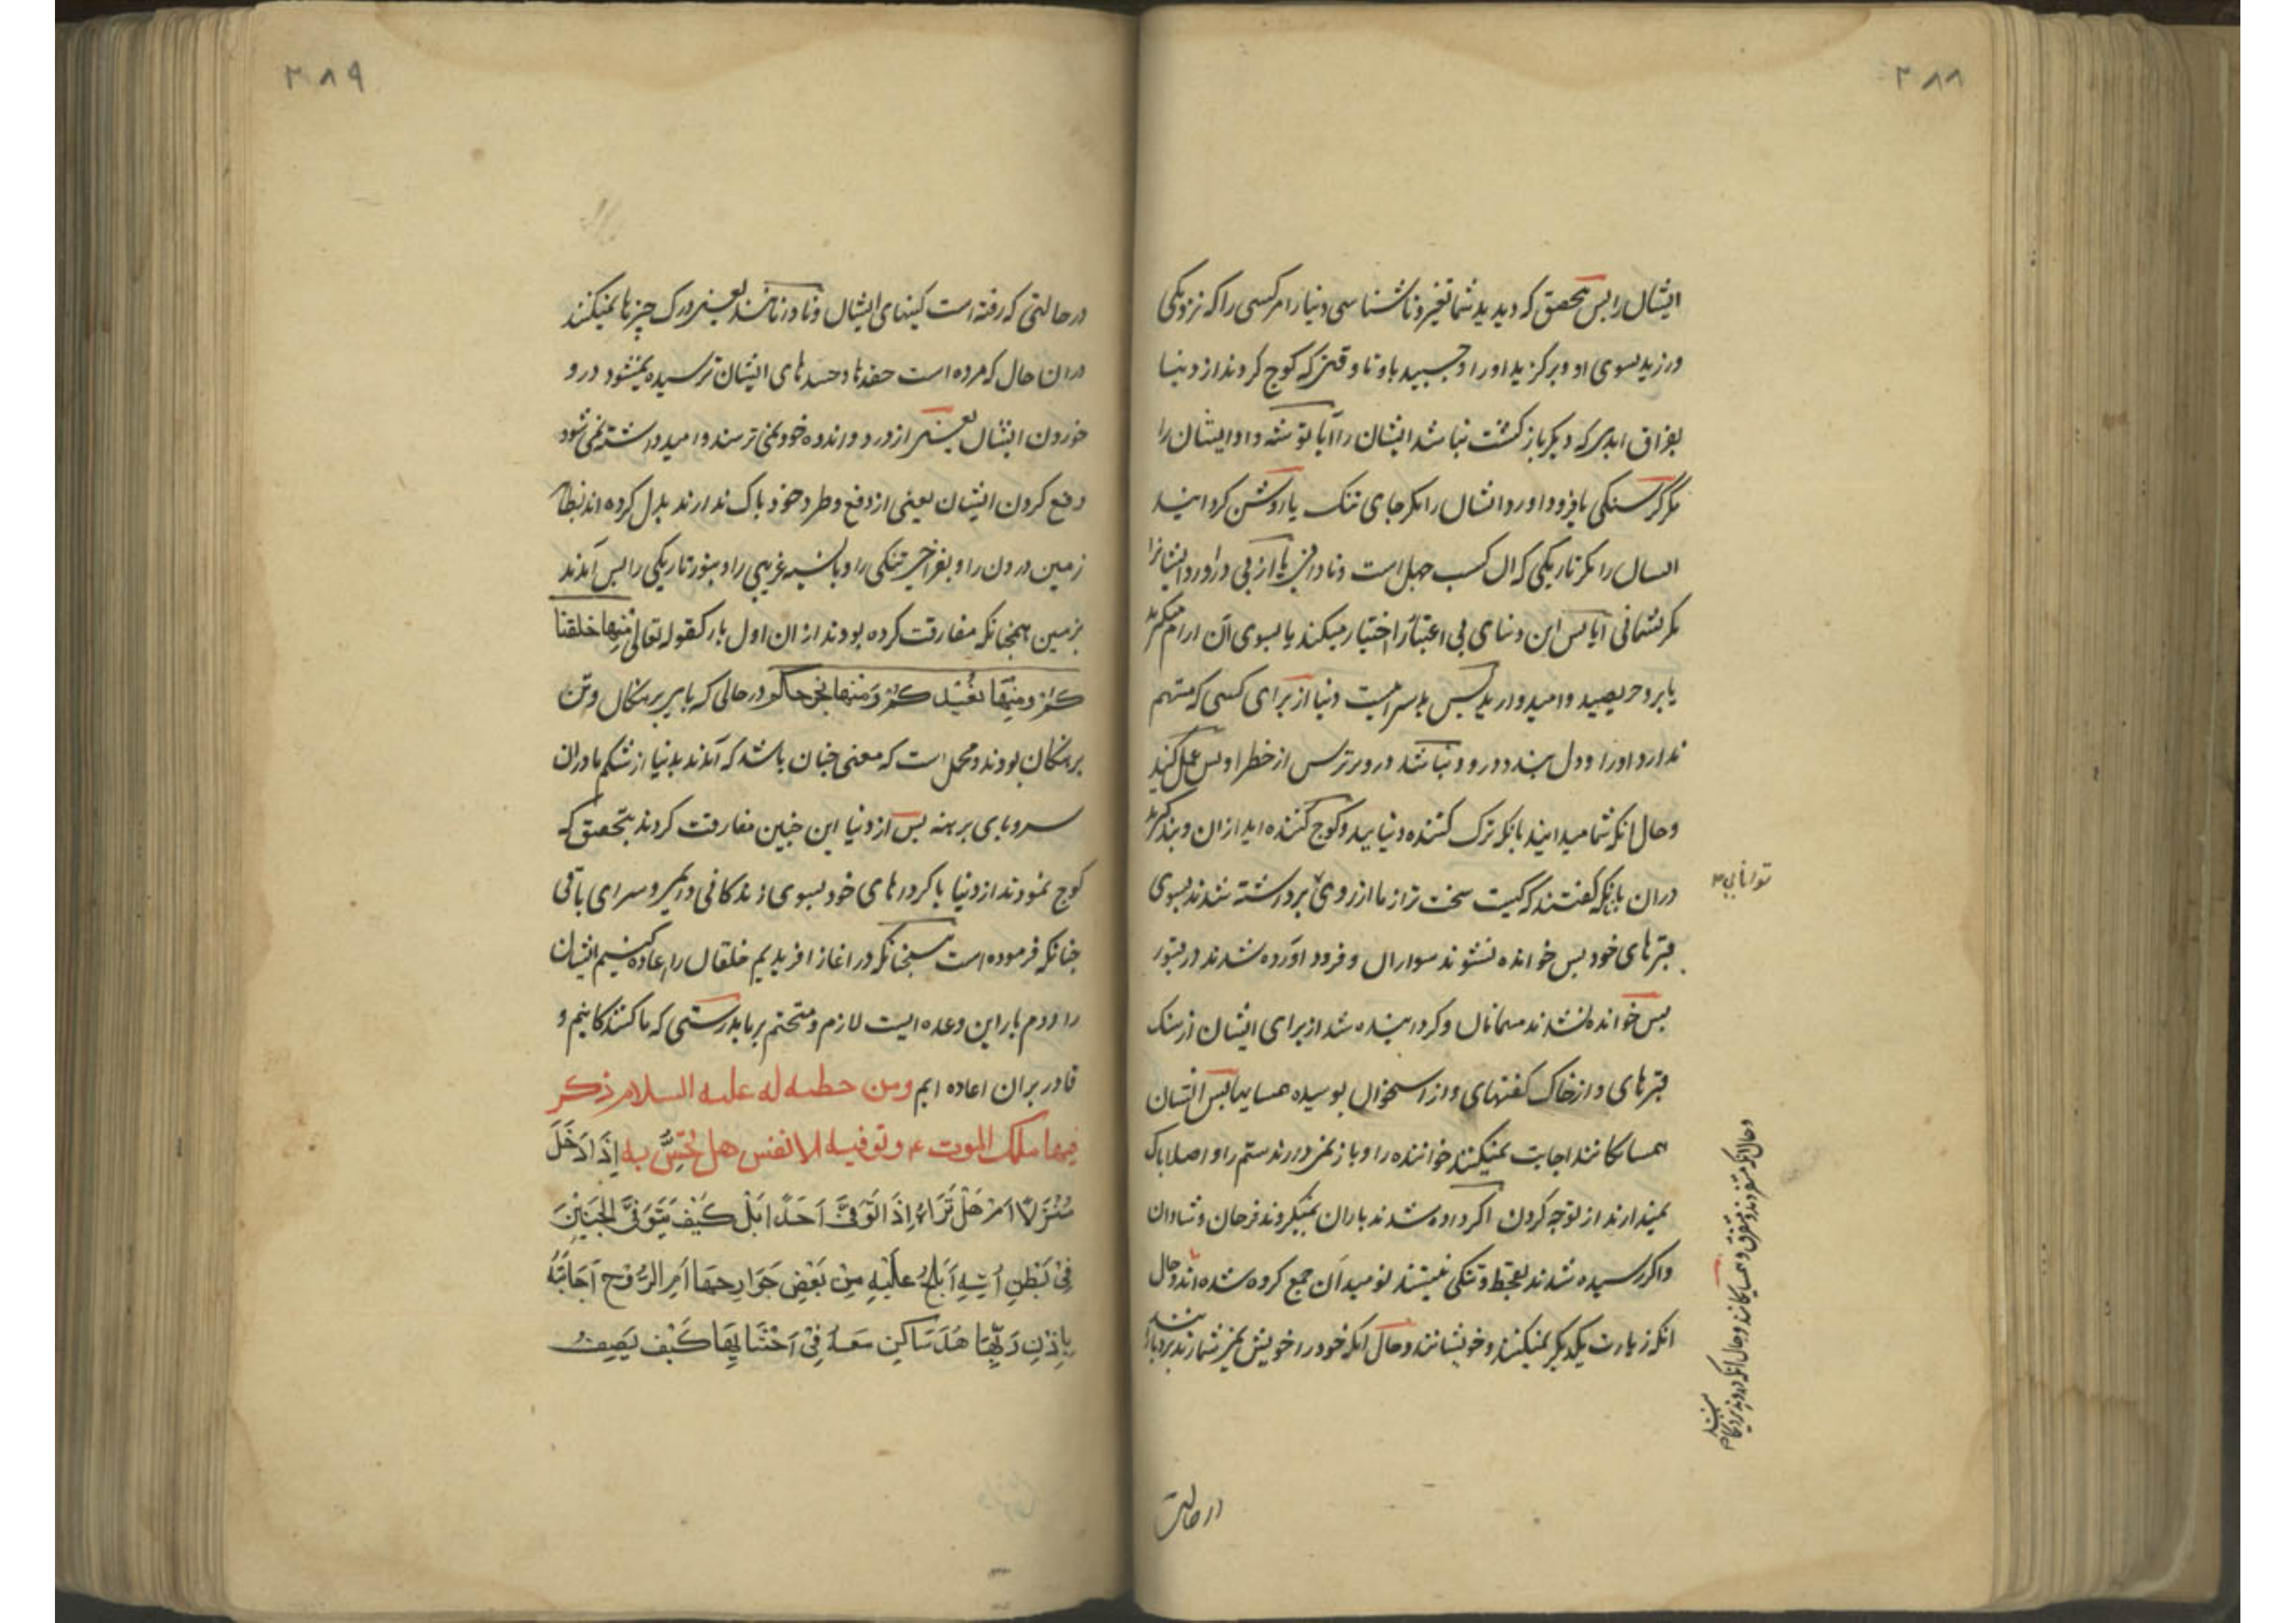 ۳۸۸
ایشان را پس تحقیق که دیدید شما تغیر و ناشناسی دنیا را مر کسی را که نزدیکی
ورزید بسوی او و برگزید او را و چسبید باو تا وقتی که کوچ کردند از دنیا
بفراق ابدی که دیگر بازگشت نباشد ایشان را آیا توشه داد ایشان را
مگر گرسنگی یا فرود آورد ایشان را مگر جای تنگ یا روشن گردانید
ایشان را مگر تاریکی که آن کسب جهل است و نادانی یا از پی در آورد ایشانرا
مگر پشیمانی آیا پس این دنیای بی اعتبار را اختیار میکنید یا بسوی آن آرام میگیرید
یا برو حریصید و امیدوارید پس بد سرائیست دنیا از برای کسی که متهم
ندارد او را و دل بندد درو و نباشد درو بر ترس از خطر او پس عمل کنید
و حال آنکه شما میدانید بآنکه ترک کننده دنیایید و کوچ کننده اید از آن و پند گیرید
در آن بآنکه گفتند که کیست سخت تر از ما از روی برداشته شدند بسوی
توانایی
قبرهای خود پس خوانده نشوند سواران و فرود آورده شدند در قبور
پس خوانده نشدند مهمانان و گردانیده شد از برای ایشان از سنگ
قبرهای و از خاک کفنهای و از استخوان پوسیده همسایها پس ایشان
همسایگانند اجابت نمیکنند خواننده را و باز نمی دارند ستم را و اصلا باک
نمیدارند از نوحه کردن اگر داده شدند باران نمیگردند فرحان و شادان
و اگر رسیده شدند بقحط و تنگی نیستند نومیدان جمع کرده شده اند و حال
آنکه زیارت یکدیگر نمیکنند و خویشانند و حال آنکه خود را خویش نمی شمارند بردبارانند
در حالتی
۳۸۹
در حالتی که رفته است کینهای ایشان و نادانانند یعنی درک چیزها نمیکنند
در آن حال که مرده است حقدها و حسدهای ایشان ترسیده نمیشود درد
خوردن ایشان یعنی از درد و اندوه خود نمی ترسند و امید داشته نمی شود
دفع کردن ایشان یعنی از دفع و طرد خود باک ندارند بدل کرده اند بظاهر
زمین درون را و بفراخی تنگی را و باهل غریبی را و بنور تاریکی را پس آمدند
بزمین همچنانکه مفارقت کرده بودند از آن اول بار کقوله تعالی منها خلقنا
کم و منها نعیدکم و منها نخرجکم در حالی که پای برهنگان و تن
برهنگان بودند و محمل است که معنی چنان باشد که آمدند بدنیا از شکم مادران
سر و پای برهنه پس از دنیا این چنین مفارقت کردند بتحقیق که
کوچ نمودند از دنیا با کردارهای خود بسوی زندگانی دایمی و سرای باقی
چنانکه فرموده است همچنانکه در آغاز آفریدیم خلقان را اعاده کنیم ایشان
را دوم بار این وعده ایست لازم و متحتم بر ما بدرستی که ما کنندگانیم و
قادر بر آن اعاده ایم ومن خطبه له علیه السلام ذکر
فیها ملک الموت ع و توفیه الانفس هل تحس به اذا دخل
منزلا ام هل تراه اذا توفی احدا بل کیف یتوفی الجنین
فی بطن امه ایلج علیه من بعض جوارحها ام الروح اجابته
باذن ربها هل ساکن معه فی احشائها کیف یصف